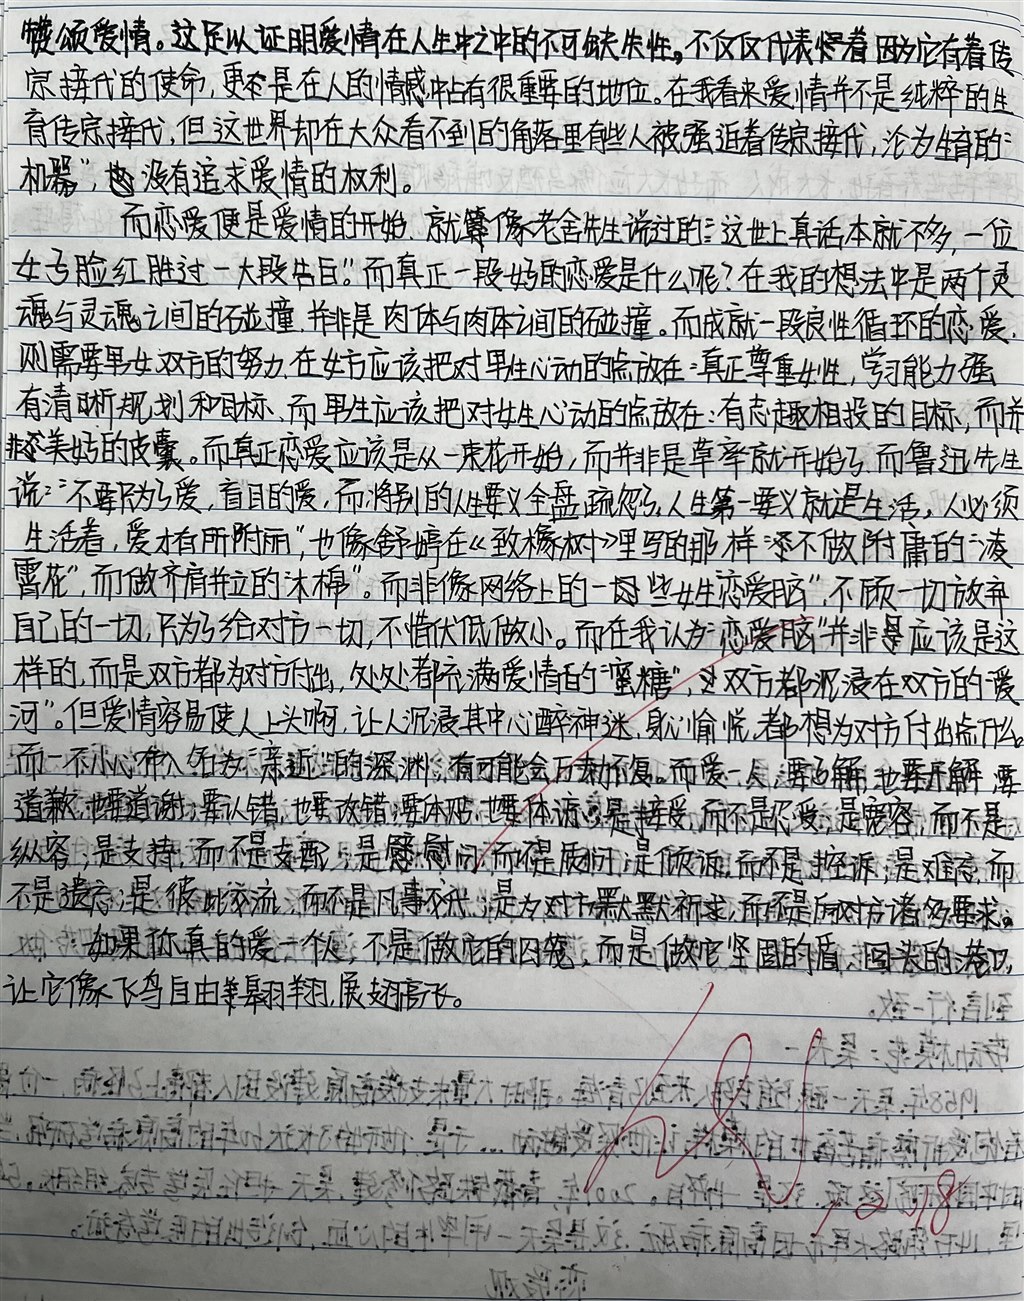 赞颂爱情。这足以证明爱情在人生中之中的不可缺失性。不仅仅代表着因为它有着传
宗接代的使命,更是在人的情感中占有很重要的地位。在我看来爱情并不是纯粹的生
育传宗接代,但这世界却在大众看不到的角落里有些人被强迫着传宗接代,沦为“生育的
机器”,没有追求爱情的权利。
而恋爱便是爱情的开始,就像老舍先生说过的:“这世上真话本就不多,一位
女子脸红胜过一大段告白。”而真正一段好的恋爱是什么呢?在我的想法中是两个灵
魂与灵魂之间的碰撞,并非是肉体与肉体之间的碰撞。而成就一段良性循环的恋爱,
则需要男女双方的努力,在女方应该把对男生心动的点放在:真正尊重女性,学习能力强
有清晰规划和目标,而男生应该把对女生心动的点放在:有志趣相投的目标,而并
非美好的皮囊。而真正恋爱应该是从一束花开始,而并非是草率就开始了,而鲁迅先生
说:“不要只为了爱,盲目的爱,而将别的人生要义全盘疏忽了,人生第一要义就是生活,人必须
生活着,爱才有所附丽”,也像舒婷在《致橡树》里写的那样:“不做附庸的凌
霄花”,而做齐肩并立的木棉”。而非像网络上的一些女生“恋爱脑”,不顾一切放弃
自己的一切,只为了给对方一切,不惜伏低做小。而在我认为“恋爱脑”并非是应该是这
样的,而是双方都为对方付出,处处都充满爱情的“蜜糖”,双方都沉浸在双方的“爱
河”。但爱情容易使人上头啊,让人沉浸其中心醉神迷,身心愉悦,都想为对方付出点什么。
而一不小心带入名为“亲近”的深渊,有可能会万劫不复。而爱一人:要了解,也要开解,要
道歉,也要道谢;要认错,也要改错;要体贴,也要体谅;是接受,而不是忍受;是宽容,而不是
纵容;是支持,而不是支配;是慰问,而不是质问;是倾诉,而不是控诉;是难忘,而
不是遗忘;是彼此交流,而不是凡事交代;是为对方默默祈求,而不是向对方诸多要求。
如果你真的爱一个人,不是做它的囚笼,而是做它坚固的盾,的港口,
让它像飞鸟自由翱翔,展翅高飞。